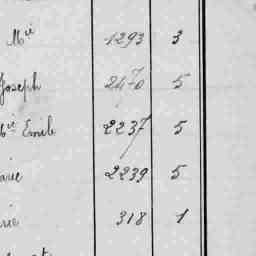 Mie 1293 3
Joseph 2470 5
Emile 2237 5
arie 2239 5
rie 318 1